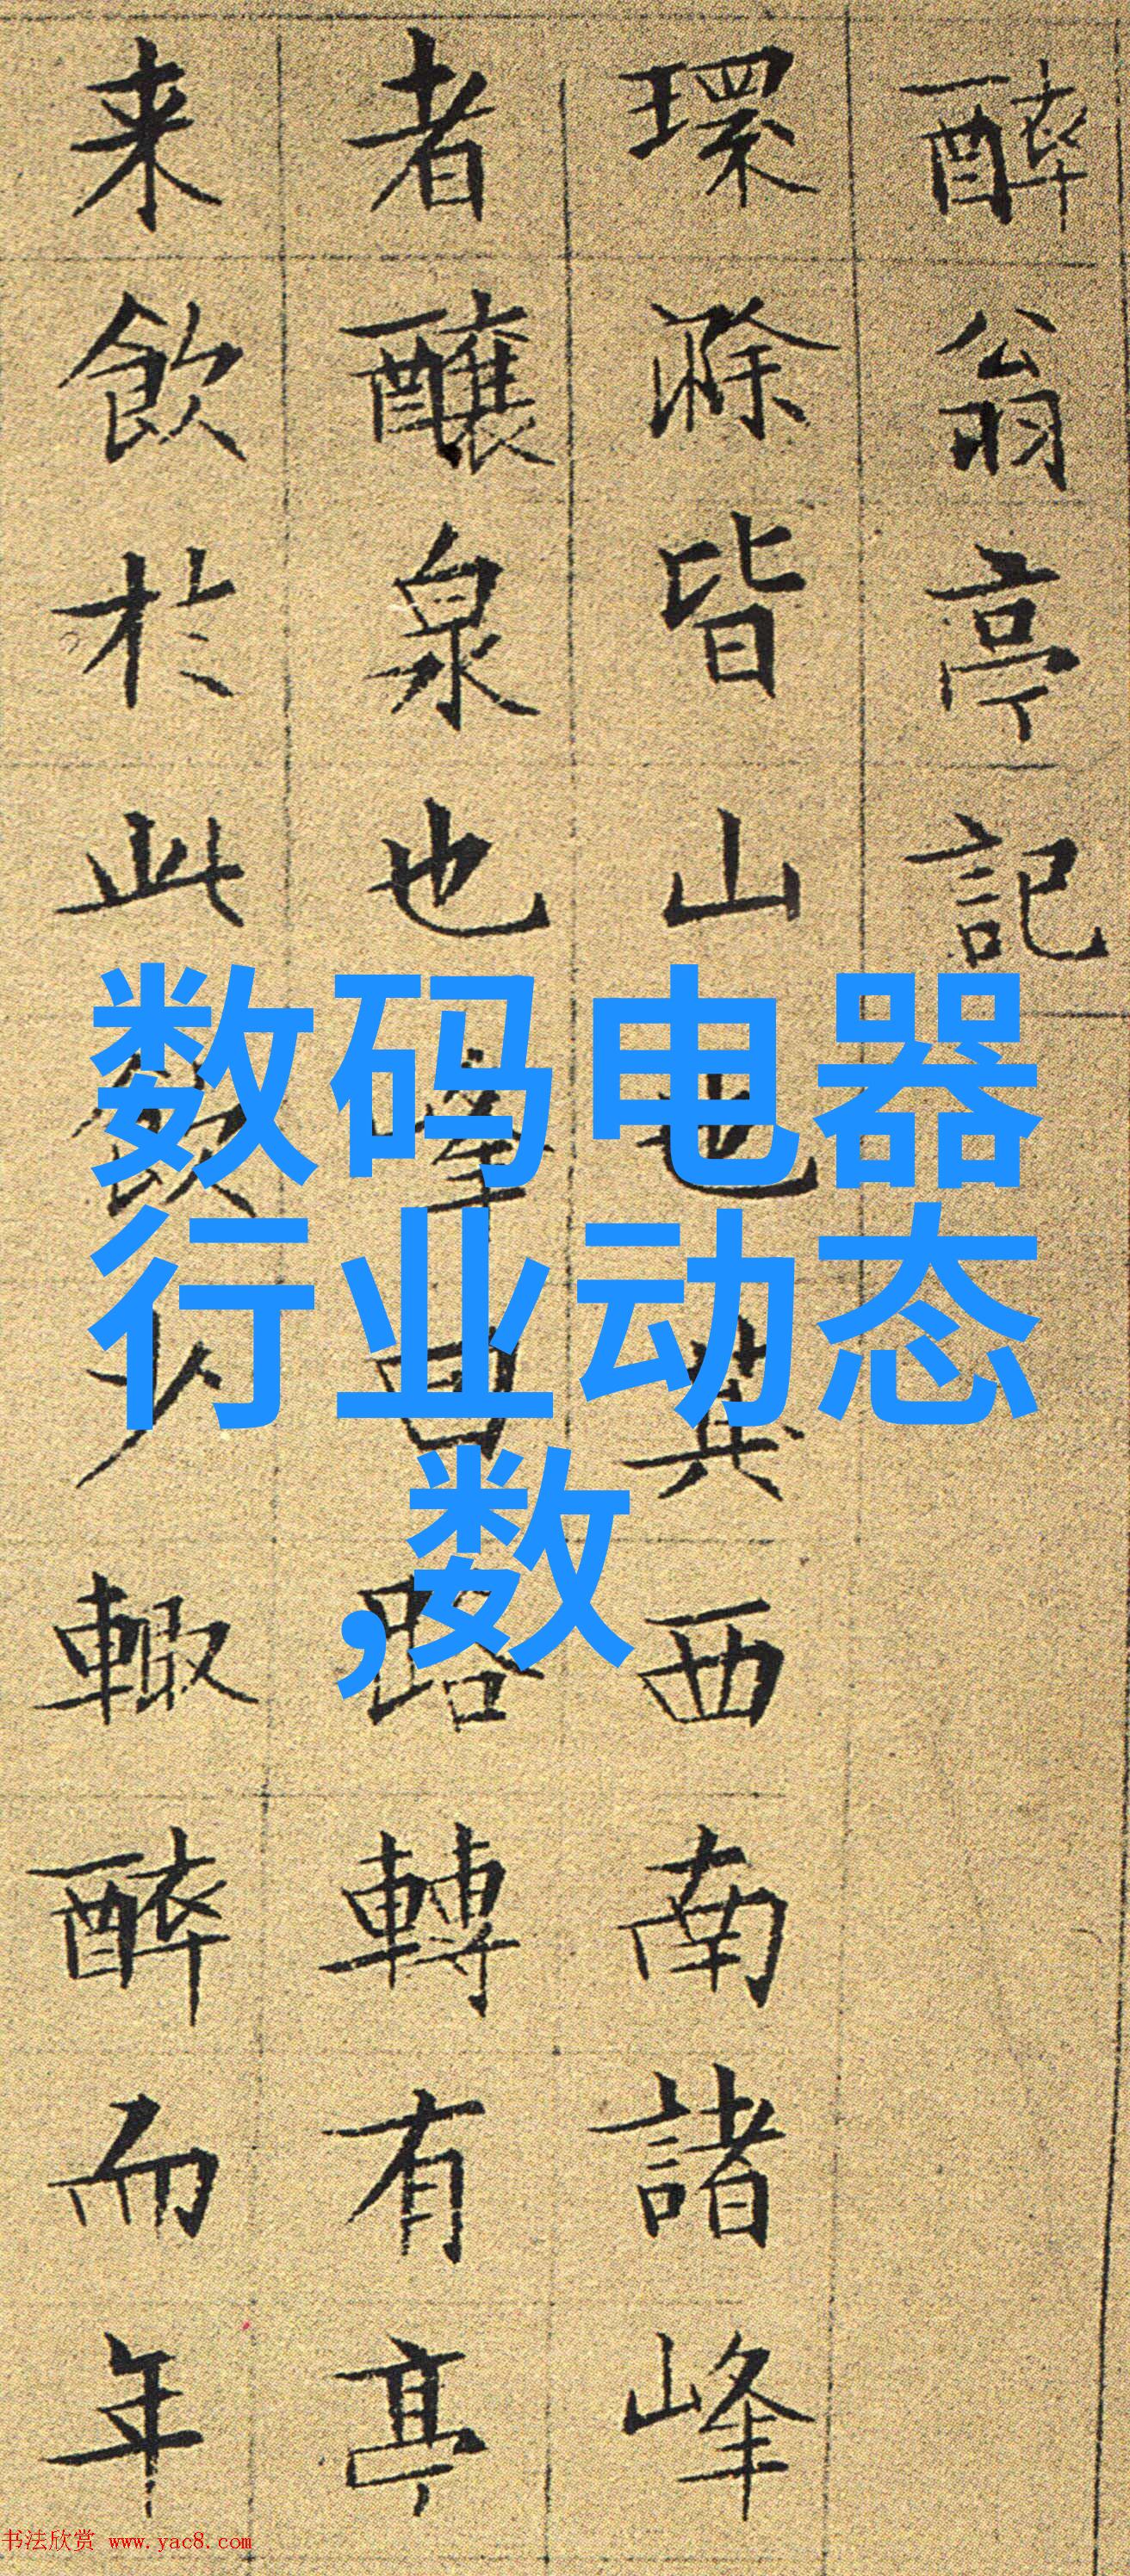 醉翁亭記
環滁皆山也其西南諸峰
者釀泉也峰回路轉有亭
来飲於此飲少輙醉而年
数码电器
行业动态
,数
书法欣赏 www.yac8.com